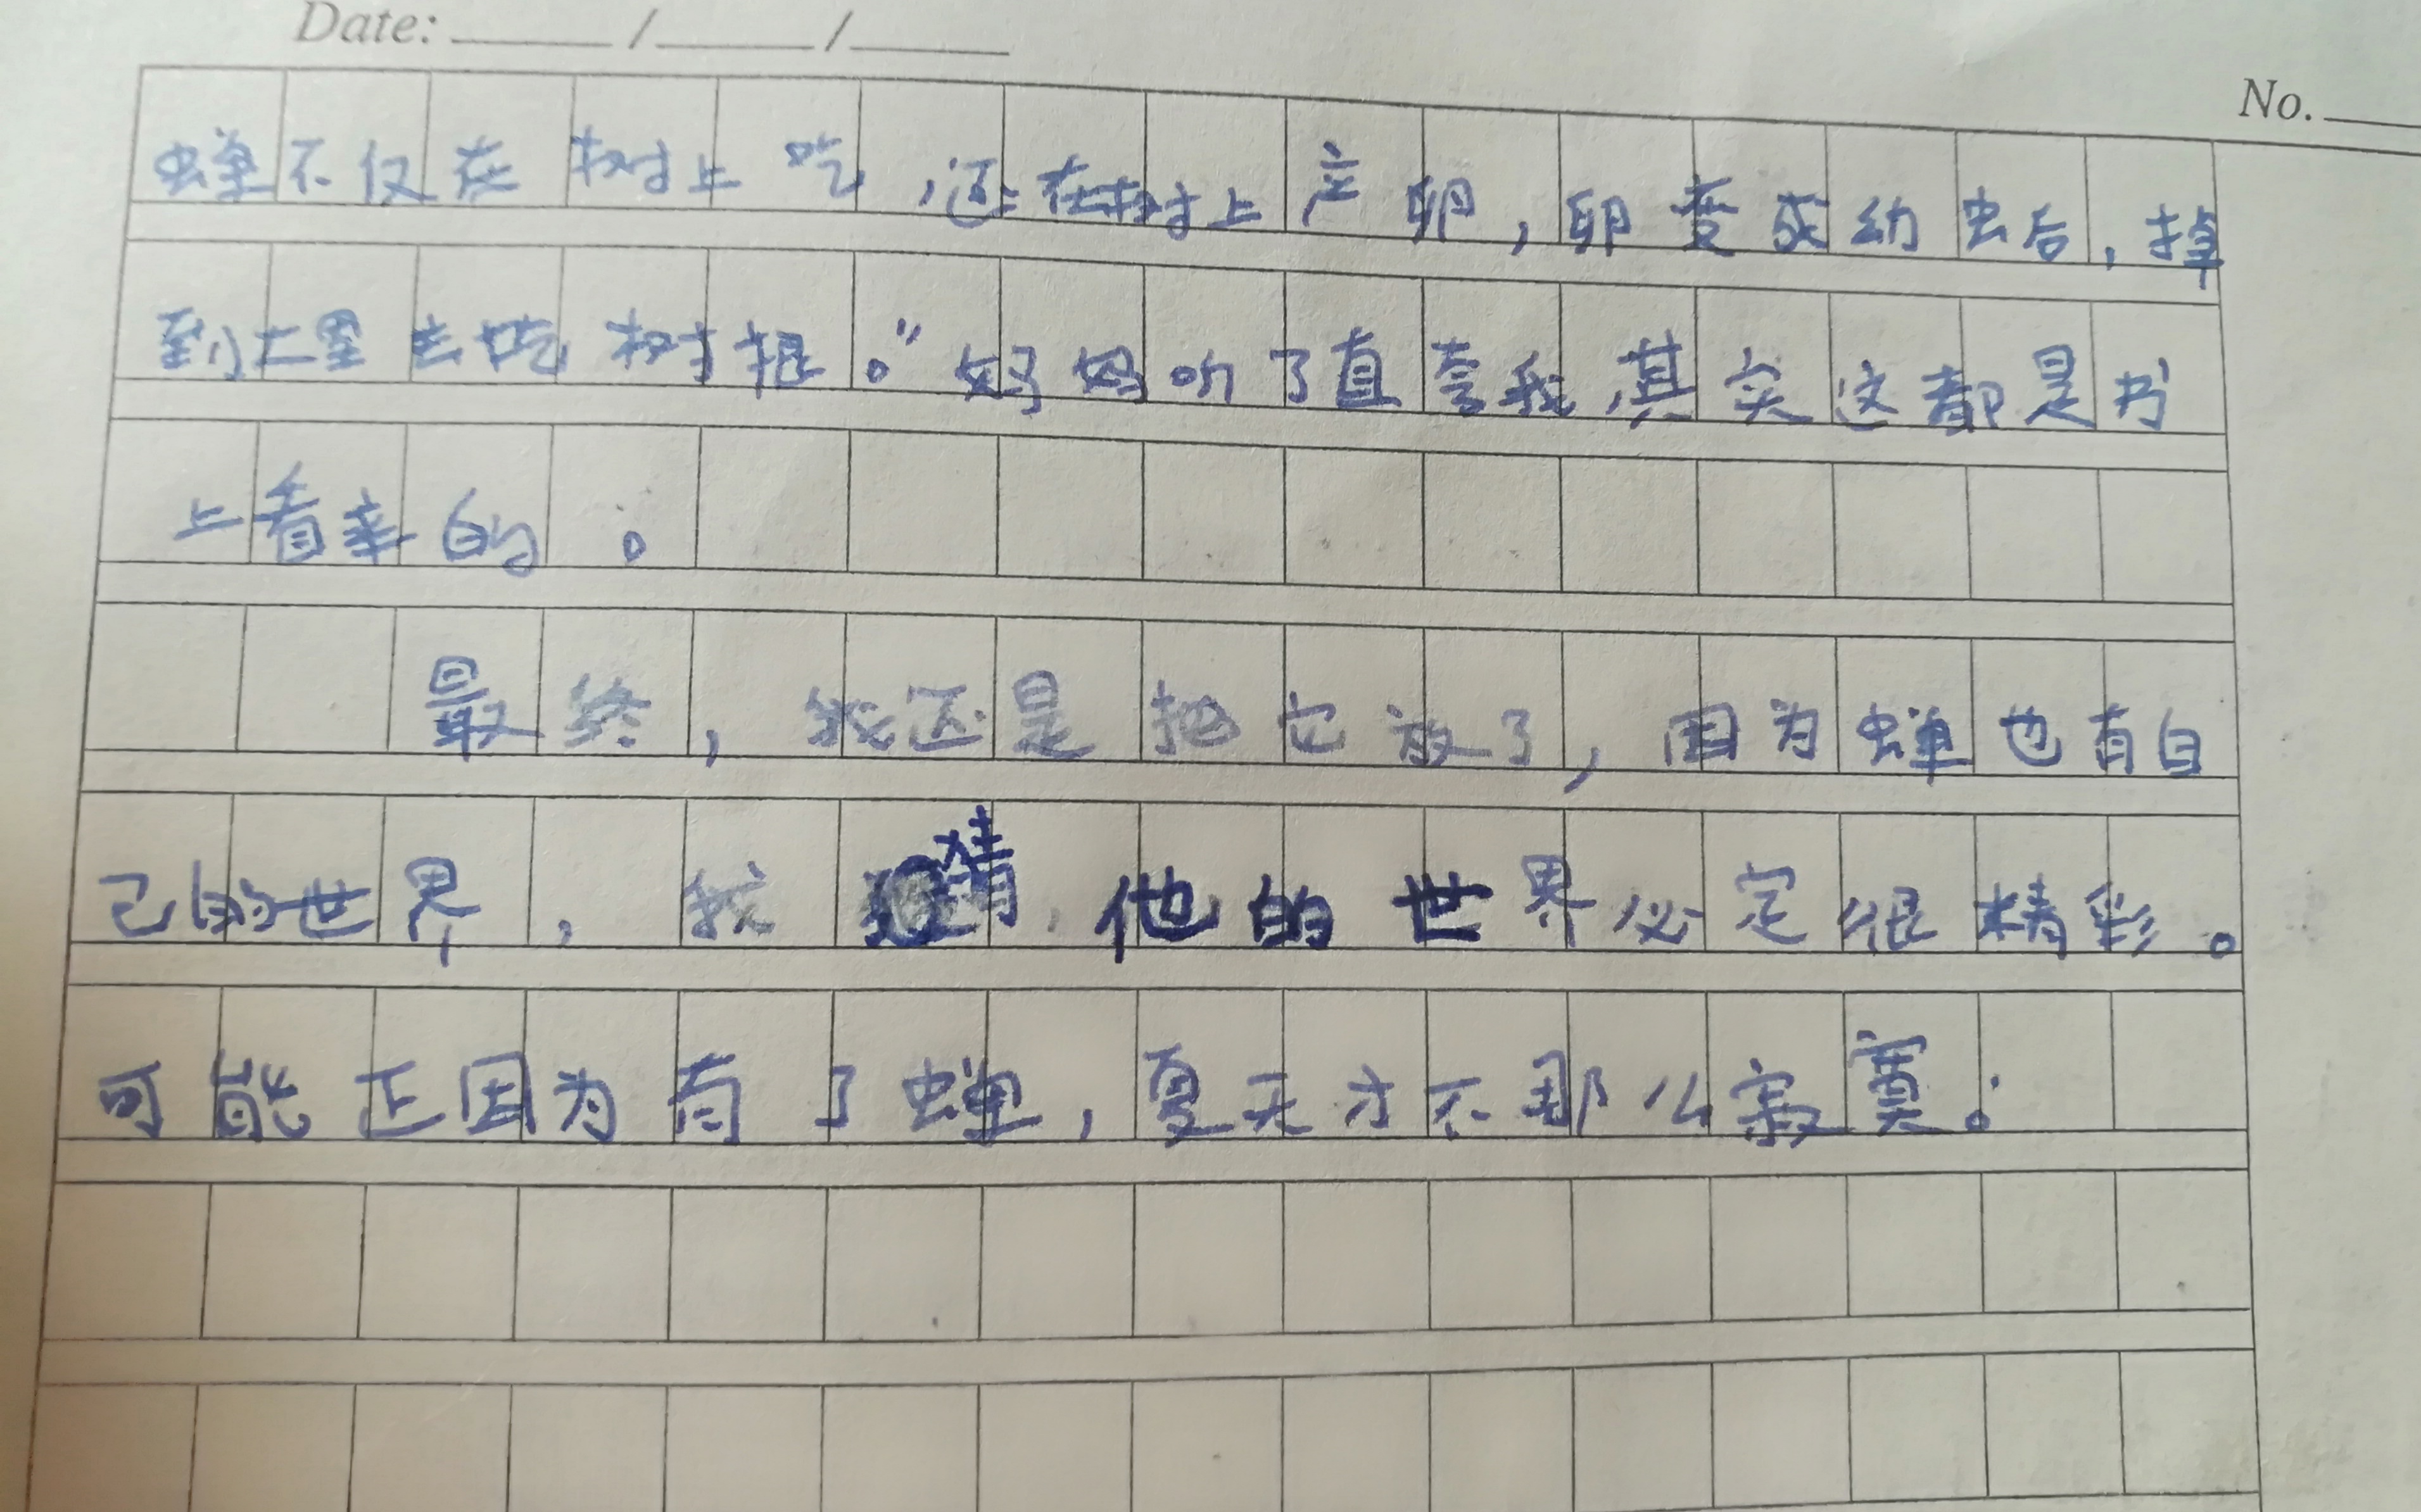 Date: ____/____/____
No.____
蝉不仅在树上吃,还在树上产卵,卵变成幼虫后,掉
到土里去吃树根。”妈妈听了直夸我,其实这都是书
上看来的。
最终,我还是把它放了,因为蝉也有自
己的世界,我猜,他的世界必定很精彩。
可能正因为有了蝉,夏天才不那么寂寞。